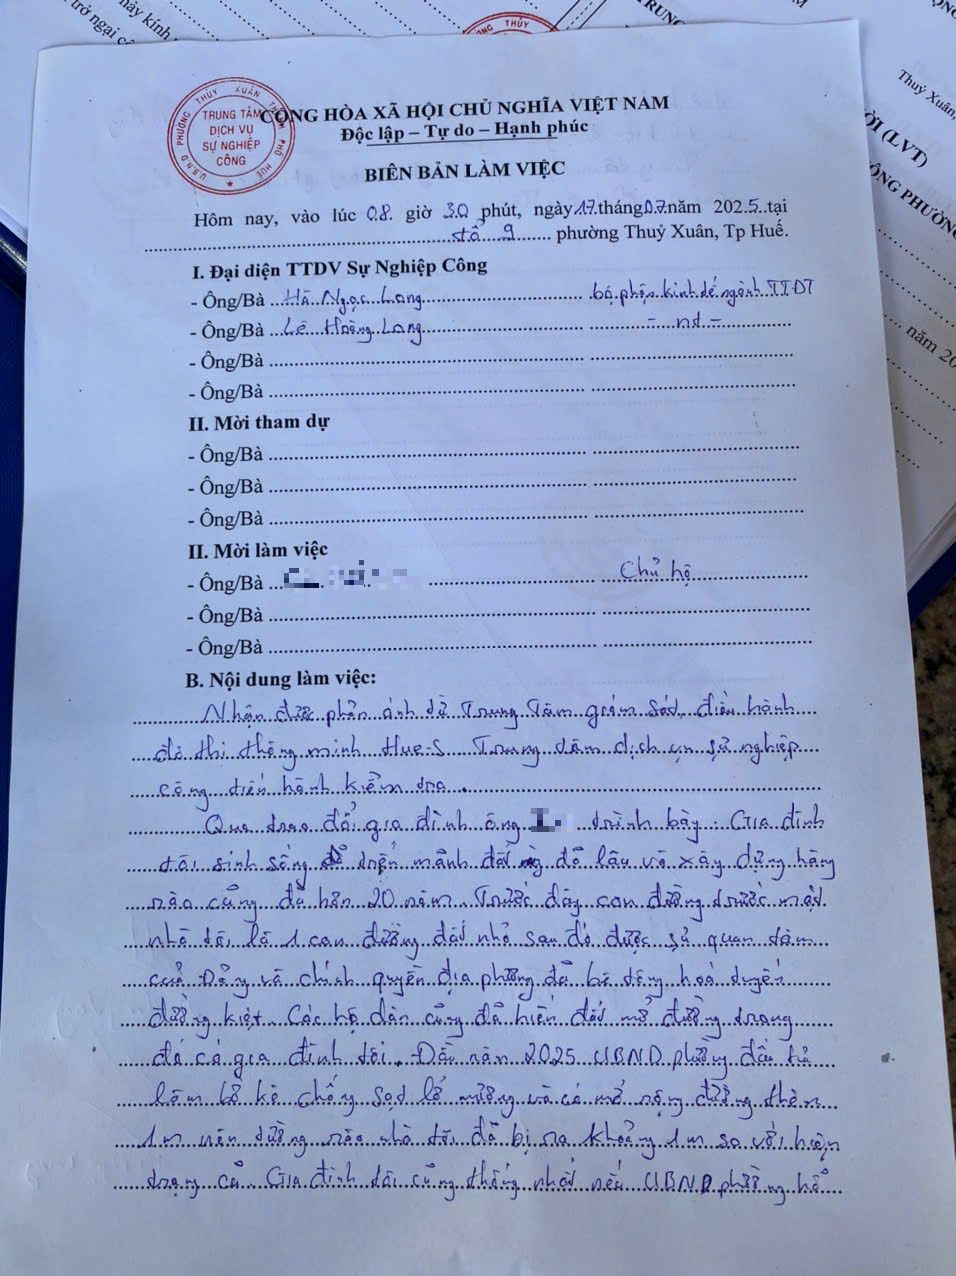 này kính
trở ngại c
U.B.N.D PHƯỜNG THỦY XUÂN THÀNH PHỐ HUẾ
TRUNG TÂM
DỊCH VỤ
SỰ NGHIỆP
CÔNG
CỘNG HÒA XÃ HỘI CHỦ NGHĨA VIỆT NAM
Độc lập – Tự do – Hạnh phúc
BIÊN BẢN LÀM VIỆC
Hôm nay, vào lúc 08 giờ 30 phút, ngày 17 tháng 07 năm 2025 tại
tổ 9 phường Thuỷ Xuân, Tp Huế.
I. Đại diện TTDV Sự Nghiệp Công
- Ông/Bà Hà Ngọc Long bộ phận kinh tế ngành TTĐT
- Ông/Bà Lê Hoàng Long - nt -
- Ông/Bà
- Ông/Bà
II. Mời tham dự
- Ông/Bà
- Ông/Bà
- Ông/Bà
II. Mời làm việc
- Ông/Bà Chủ hộ
- Ông/Bà
- Ông/Bà
B. Nội dung làm việc:
Nhận được phản ánh từ Trung Tâm giám sát, điều hành
đô thị thông minh Hue-S Trung tâm dịch vụ sự nghiệp
công tiến hành kiểm tra.
Qua trao đổi gia đình ông trình bày: Gia đình
tôi sinh sống trên mảnh đất đã lâu và xây dựng hàng
rào cũng đã hơn 20 năm. Trước đây con đường trước mặt
nhà tôi là 1 con đường đất nhỏ sau đó được sự quan tâm
của Đảng và chính quyền địa phương đã bê tông hoá tuyến
đường kiệt. Các hộ dân cũng đã hiến đất mở đường trong
đó có gia đình tôi. Đầu năm 2025 UBND phường đầu tư
làm bờ kè chống sạt lở mương và có mở rộng đường thêm
1m nên tường rào nhà tôi đã bị ra khoảng 1m so với hiện
trạng cũ. Gia đình tôi cũng thống nhất nếu UBND phường hỗ
Thuỷ Xuân,
ỜI (LVT)
ÔNG PHƯỜN
năm 20